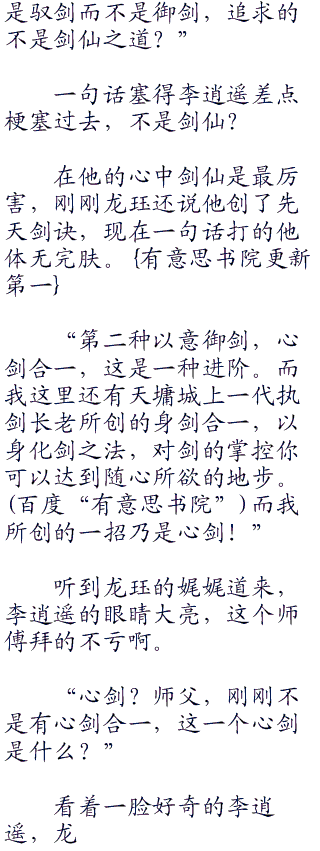 是驭剑而不是御剑，追求的
不是剑仙之道？”
一句话塞得李逍遥差点
梗塞过去，不是剑仙？
在他的心中剑仙是最厉
害，刚刚龙珏还说他创了先
天剑诀，现在一句话打的他
体无完肤。{有意思书院更新
第一}
“第二种以意御剑，心
剑合一，这是一种进阶。而
我这里还有天墉城上一代执
剑长老所创的身剑合一，以
身化剑之法，对剑的掌控你
可以达到随心所欲的地步。
(百度“有意思书院”)而我
所创的一招乃是心剑！”
听到龙珏的娓娓道来，
李逍遥的眼睛大亮，这个师
傅拜的不亏啊。
“心剑？师父，刚刚不
是有心剑合一，这一个心剑
是什么？”
看着一脸好奇的李逍
遥，龙